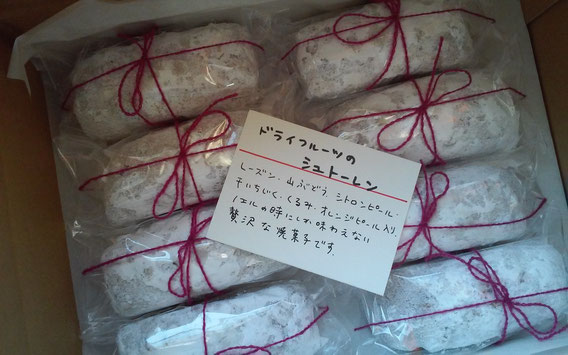 ドライフルーツの
シュトーレン
レーズン、山ぶどう、シトロンピール・
干いちじく・くるみ・オレンジピール入り
ノエルの時にしか味わえない
贅沢な焼菓子です。